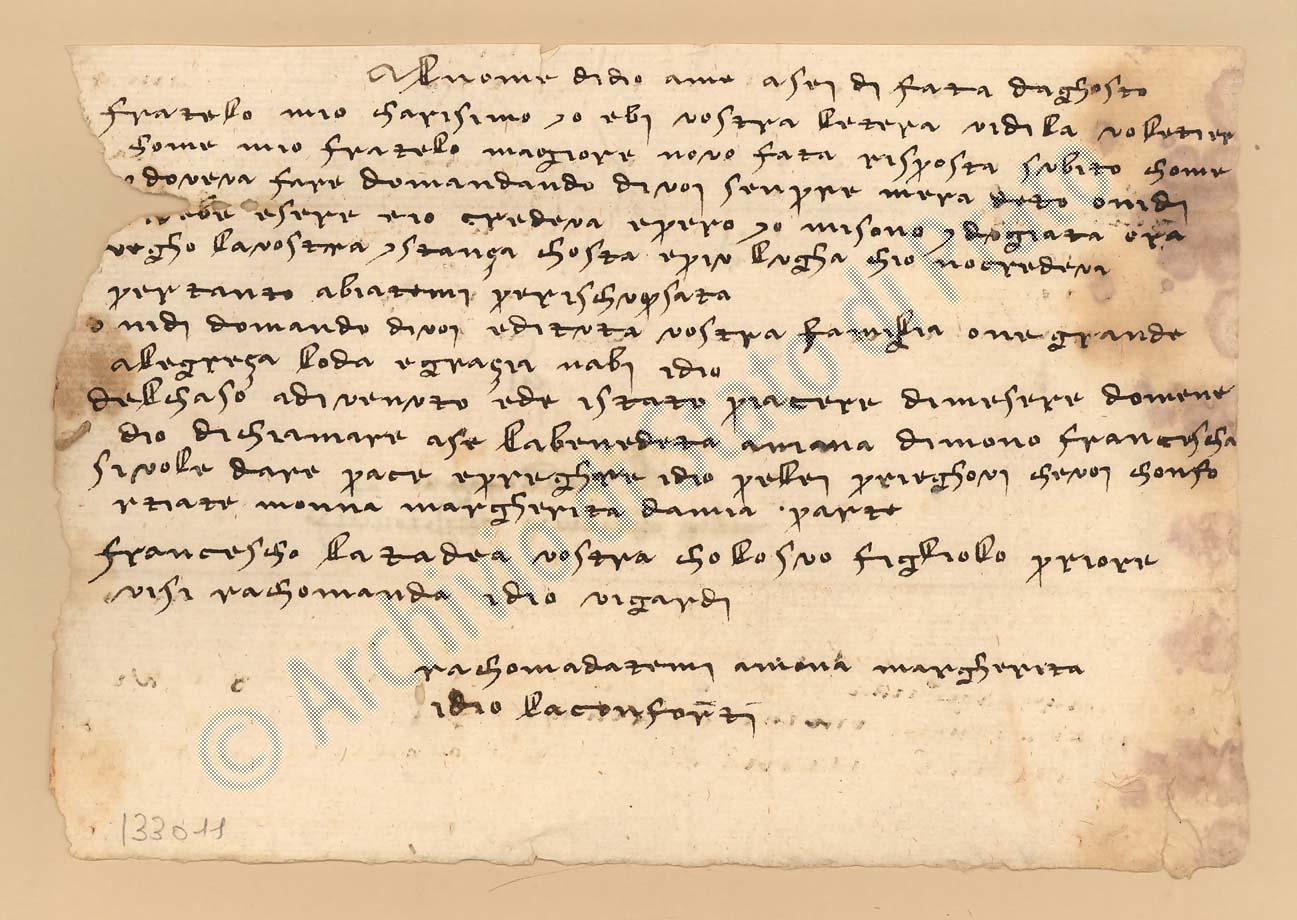 Al nome didio ame asei di fata daghosto
fratelo mio charisimo yo ebi vostra letera vidila voletier
chome mio fratelo magiore novo fata risposta subito chome
ydoveva fare domandando divoi senpre mera deto onidi
rebe esere eio credeva epero yo misono ydogiata ora
vegho lavostra ystança chosta epiu lugha chio nocredeva
pertanto abiatemi perischupsata
onidi domando divoi editvta vostra familia one grande
alegreça loda egraçia nabi idio
delchaso adivenuto ede istato piacere dimesere domene
dio dichiamare ase labenedeta anima dimono francescha
sivole dare pace epreghare idio pellei prieghovi chevoi chonfo
rtiate monna margherita damia parte
francescho latadea vostra cholosuo figliolo priore
visi rachomanda idio vigardi
rachomadatemi amona margherita
idio laconforti
133011
© Archivio di Stato di Prato